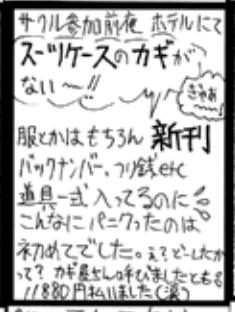 サークル参加前夜 ホテルにて
スーツケースのカギが
ない〜!!
ぎゃあ
〜〜!
服とかはもちろん 新刊
バックナンバー、つり銭etc
道具一式 入ってるのに
こんなにパニクったのは
初めてでした。え?どーしたか
って? カギ屋さん呼びましたとも。
11880円払いました(涙)